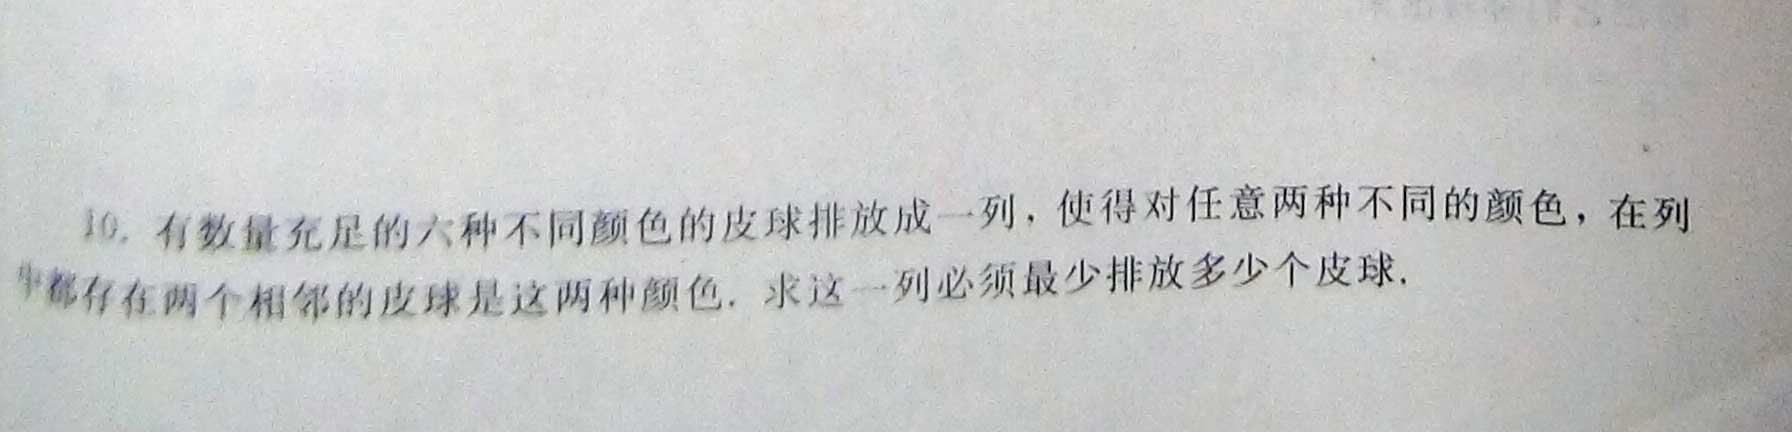 10. 有数量充足的六种不同颜色的皮球排放成一列，使得对任意两种不同的颜色，在列
中都存在两个相邻的皮球是这两种颜色. 求这一列必须最少排放多少个皮球.